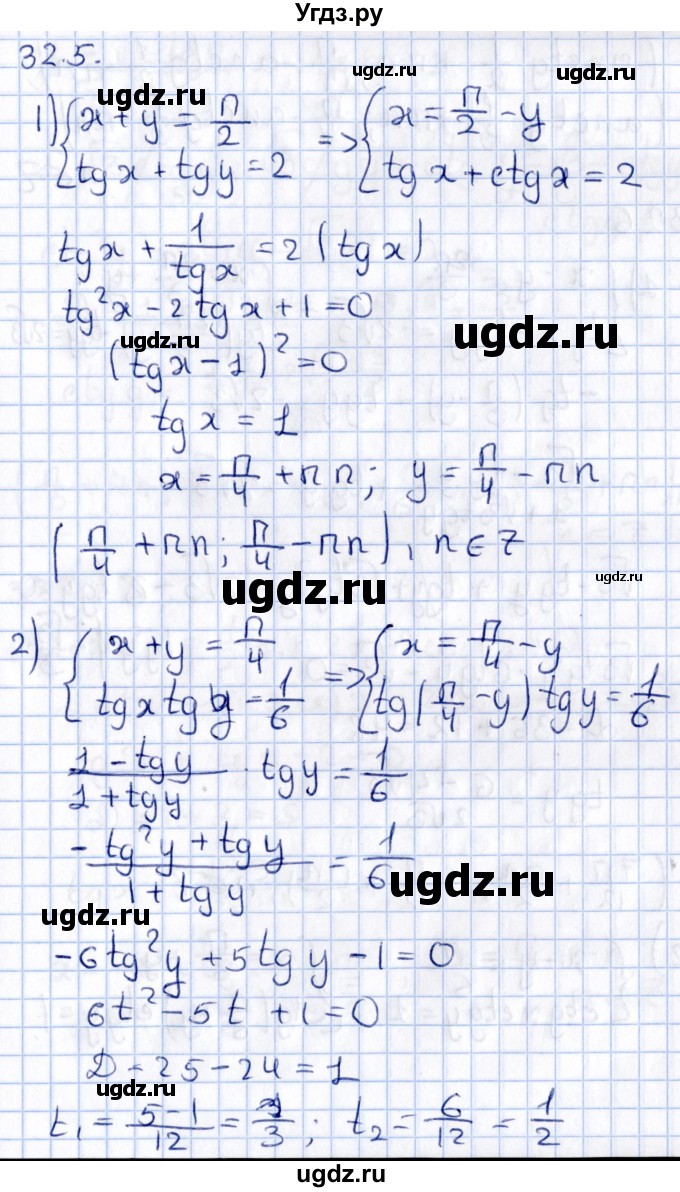 Угдз.ру
32.5.
ugdz.ru
ugdz.ru
ugdz.ru
1) { x + y = π/2 => { x = π/2 - y
{ tg x + tg y = 2 { tg x + ctg x = 2
tg x + 1/tg x = 2 (tg x)
tg²x - 2 tg x + 1 = 0
ugdz.ru
ugdz.ru
(tg x - 1)² = 0
tg x = 1
x = π/4 + πn; y = π/4 - πn
(π/4 + πn; π/4 - πn), n ∈ Z
ugdz.ru
ugdz.ru
2) { x + y = π/4 => { x = π/4 - y
{ tg x tg y = 1/6 { tg(π/4 - y) tg y = 1/6
(1 - tg y)/(1 + tg y) · tg y = 1/6
(-tg²y + tg y)/(1 + tg y) = 1/6
ugdz.ru
ugdz.ru
-6tg²y + 5tg y - 1 = 0
6t² - 5t + 1 = 0
D = 25 - 24 = 1
ugdz.ru
t₁ = (5-1)/12 = 1/3; t₂ = 6/12 = 1/2
ugdz.ru